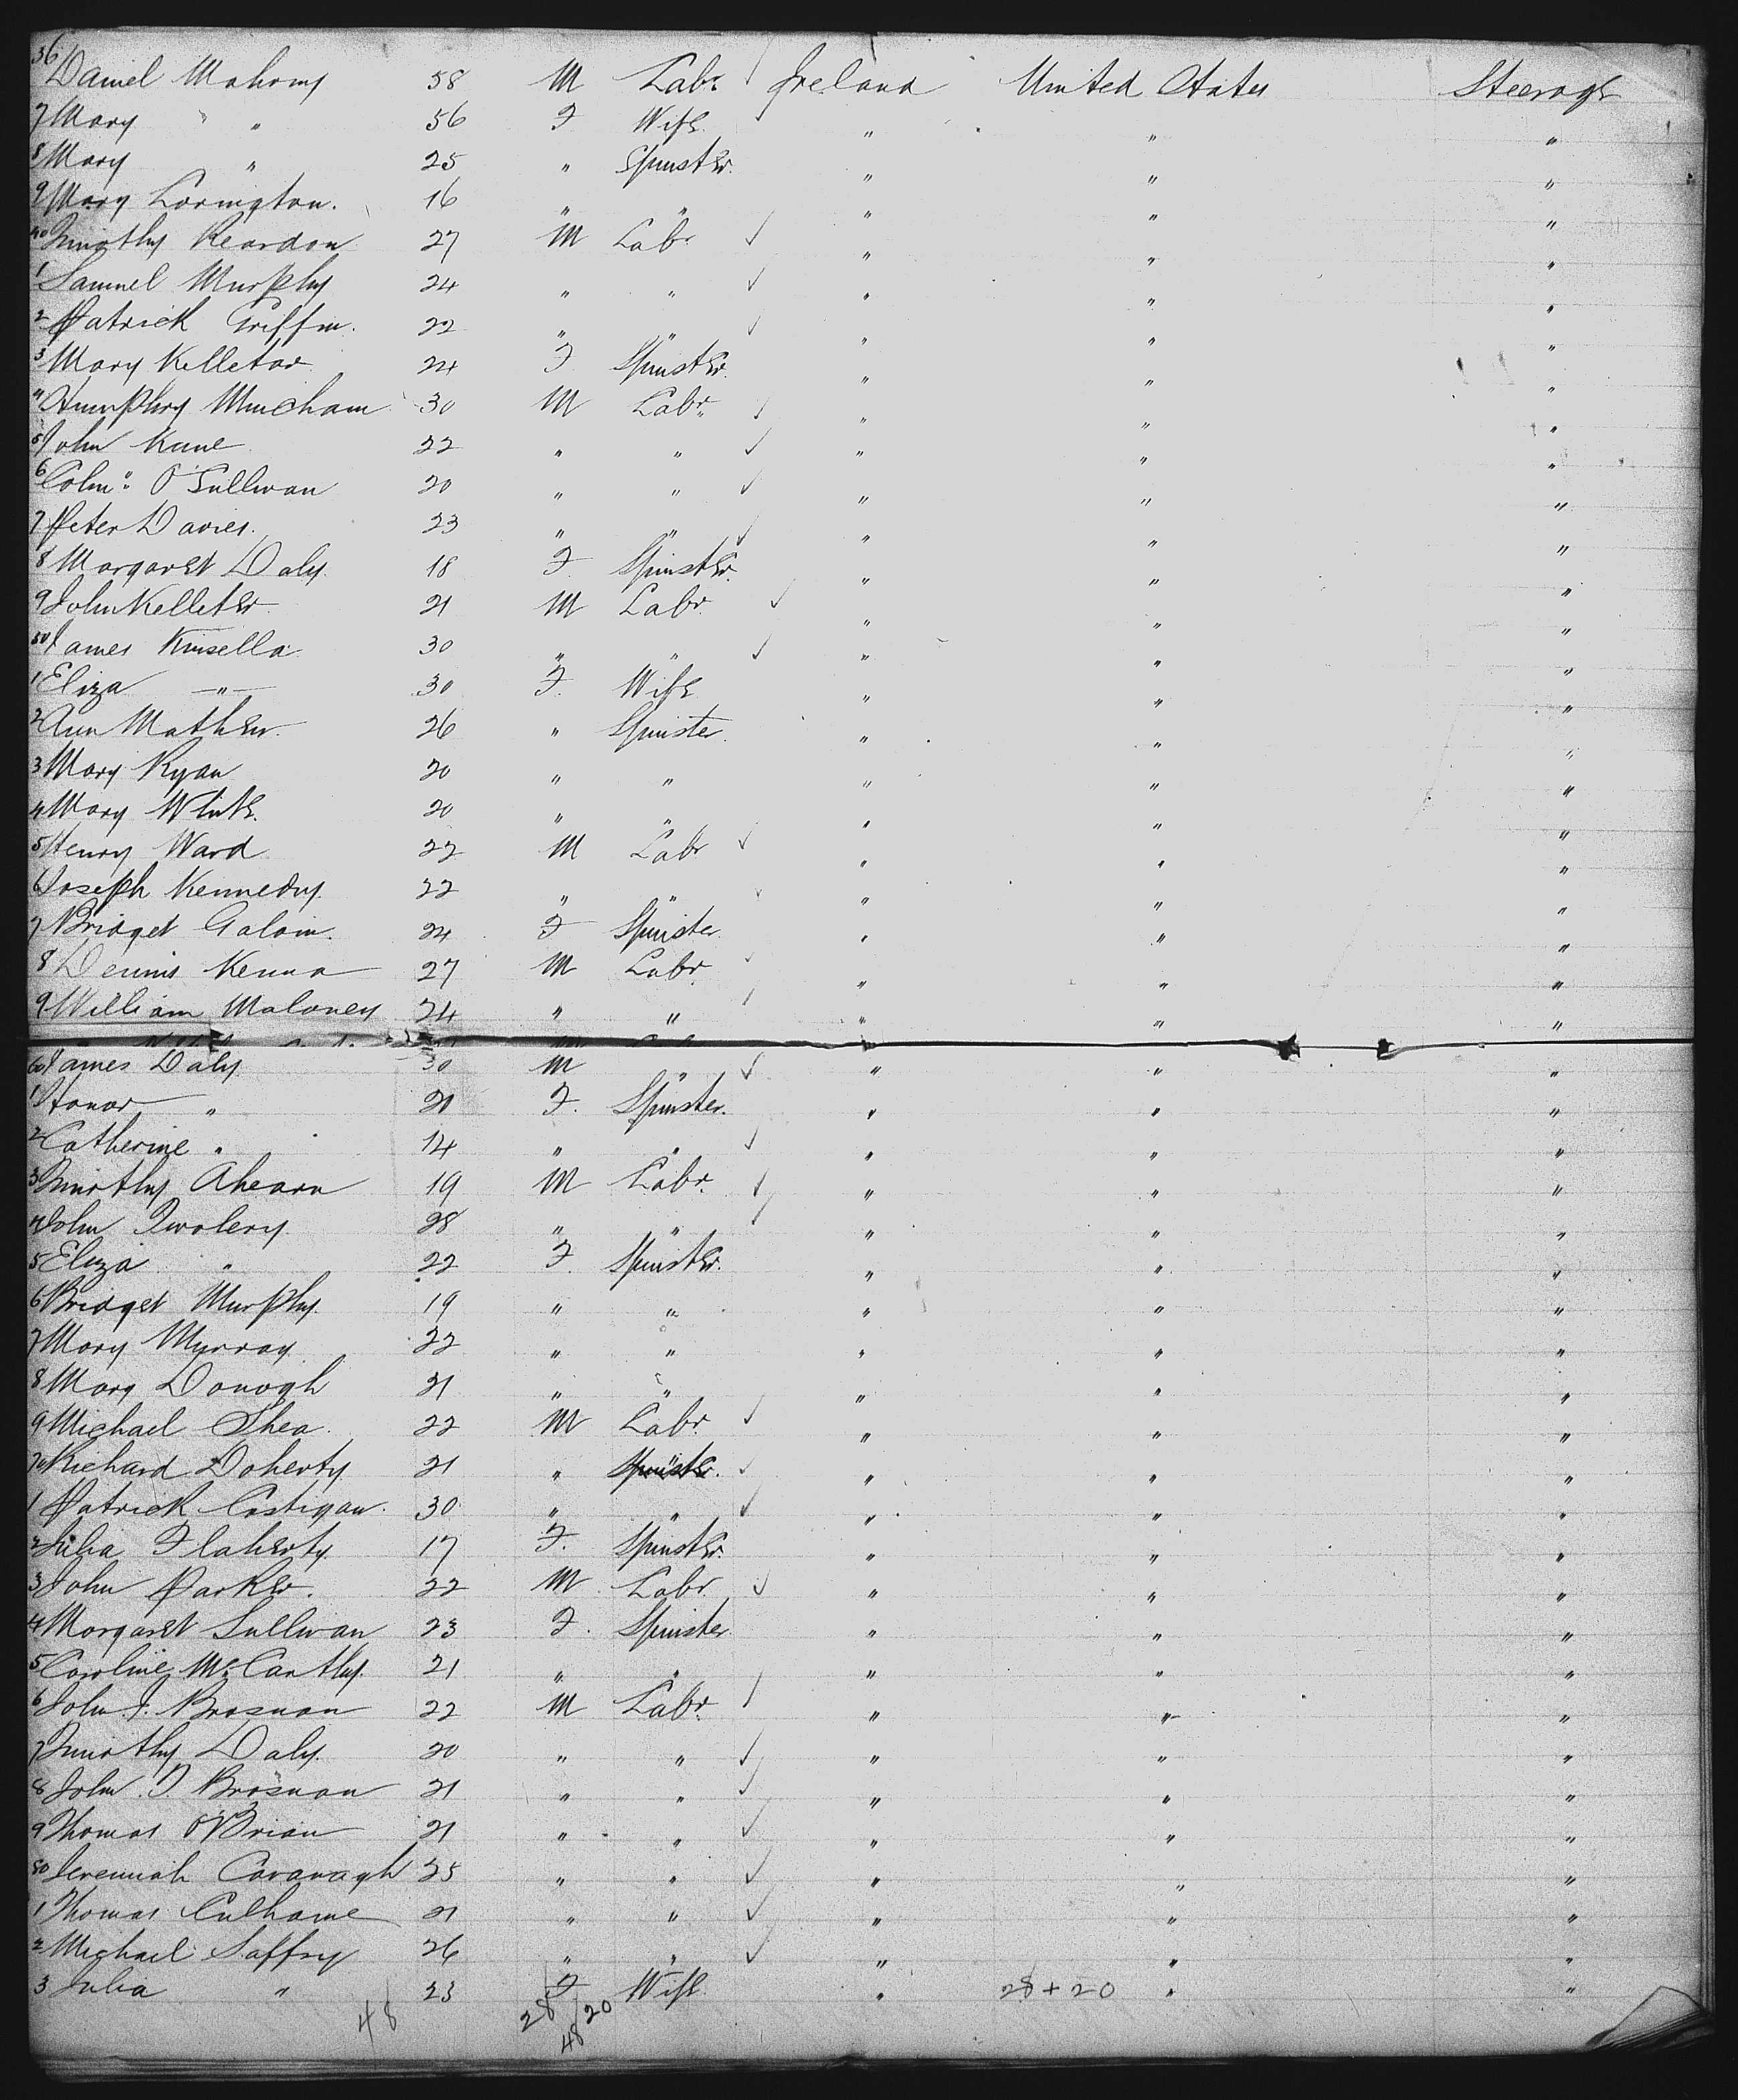 36 Daniel Mahony 58 M Labr Ireland United States Steerage
7 Mary " 56 F Wife " " "
8 Mary " 25 " Spinster " " "
9 Mary Lorington. 16 " " " " "
40 Timothy Reardon 27 M Labr " " "
1 Samuel Murphy 24 " " " " "
2 Patrick Griffin. 22 " " " " "
3 Mary Kelleter 24 F Spinster. " " "
4 Humphry Mincham 30 M Labr. " " "
5 John Kane 22 " " " " "
6 Colm: O'Sullivan 20 " " " " "
7 Peter Davies. 23 " " " " "
8 Margaret Daly. 18 F. Spinster. " " "
9 John Kelleter 21 M Labr. " " "
50 James Kinsella 30 " " " " "
1 Eliza —"— 30 F. Wife " " "
2 Ann Mather. 26 " Spinster. " " "
3 Mary Ryan 20 " " " " "
4 Mary White. 20 " " " " "
5 Henry Ward 22 M Labr " " "
6 Joseph Kennedy. 22 " " " " "
7 Bridget Galvin. 24 F Spinster " " "
8 Dennis Kenna 27 M Labr. " " "
9 William Maloney 24 " " " " "
60 James Daly 30 M " " " "
1 Honor " 21 F. Spinster. " " "
2 Catherine " 14 " " " " "
3 Timothy Ahearn 19 M Labr. " " "
4 John Twolery. 28 " " " " "
5 Eliza " 22 F. Spinster. " " "
6 Bridget Murphy. 19 " " " " "
7 Mary Murray 22 " " " " "
8 Mary Donogh 21 " " " " "
9 Michael Shea. 22 M Labr. " " "
70 Richard Doherty 21 " Spinster. " " "
1 Patrick Costigan. 30 " " " " "
2 Julia Flaherty. 17 F. Spinster. " " "
3 John Parker. 22 M. Labr. " " "
4 Margaret Sullivan 23 F. Spinster. " " "
5 Caroline McCarthy. 21 " " " " "
6 John J. Brosnan 22 M Labr. " " "
7 Timothy Daly. 20 " " " " "
8 John. T. Brosnan 21 " " " " "
9 Thomas O'Brian 21 " " " " "
80 Jeremiah Cavanagh 25 " " " " "
1 Thomas Culhane 21 " " " " "
2 Michael Saffry 26 " " " " "
3 Julia " 23 F Wife " 28 + 20 " "
48 28 20
48